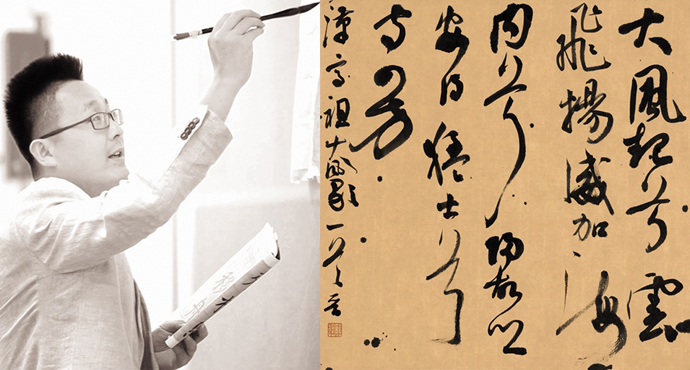 大風起兮雲
飛揚威加海
内兮歸故鄉
安得猛士兮
守四方
漢高祖大風歌